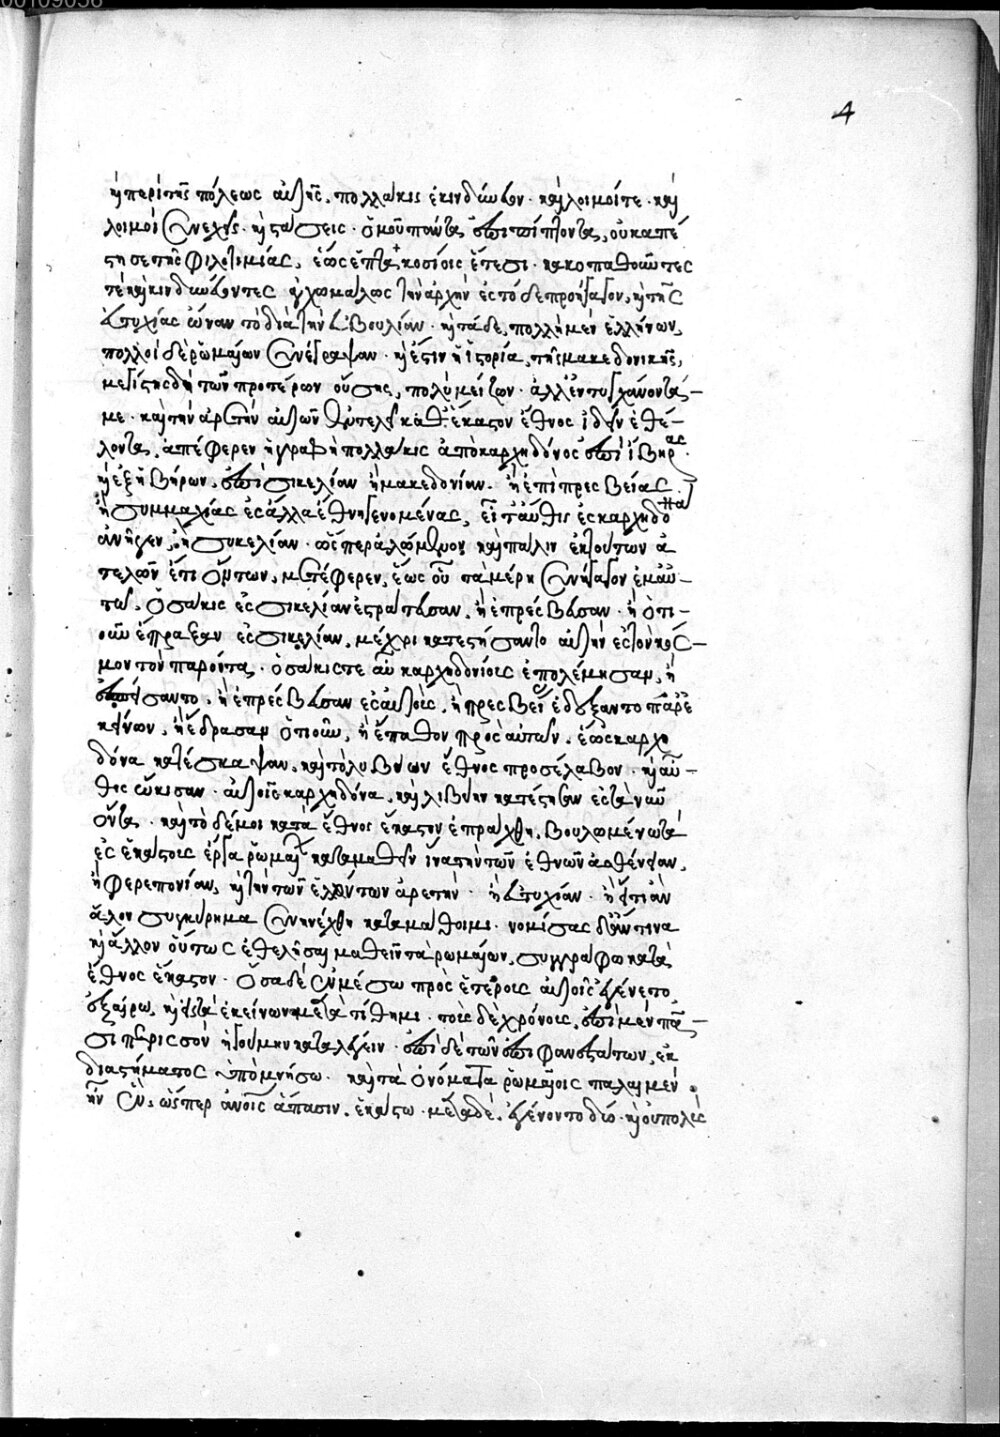 4
ἢ περὶ τῆς πόλεως αὐτῆς, πολλάκις ἐκινδύνευον· καὶ λοιμοί τε· καὶ
λοιμοὶ συνεχεῖς· καὶ στάσεις· ὁμοῦ πάντα ἐπιπίπτοντα, οὐκ ἀπέ
στησε τῆς φιλοτιμίας, ἕως ἑπτακοσίοις ἔτεσι· κακοπαθοῦντες
τὲ καὶ κινδυνεύοντες ἀγχωμάλως τὴν ἀρχὴν ἐς τόδε προήγαγον, καὶ τῆς
εὐτυχίας ὤναντο διὰ τὴν εὐβουλίαν· καὶ τάδε, πολλοὶ μὲν ἑλλήνων,
πολλοὶ δὲ ῥωμαίων συνέγραψαν· καὶ ἔστιν ἡ ἱστορία, τῆς μακεδονικῆς,
μεγίστης δὴ τῶν προτέρων οὔσης, πολὺ μείζων· ἀλλ' ἐντυγχάνοντά
με· καὶ τὴν ἀρετὴν αὐτῶν ἐντελῆ καθ' ἕκαστον ἔθνος ἰδεῖν ἐθέ
λοντα, ἀπέφερεν ἡ γραφὴ πολλάκις ἀπὸ καρχηδόνος ἐπὶ ἴβηρας·
καὶ ἐξ ἰβήρων, ἐπὶ σικελίαν ἢ μακεδονίαν· ἢ ἐπὶ πρεσβείας
ἢ συμμαχίας ἐς ἄλλα ἔθνη γενομένας, εἶτ' αὖθις ἐς καρχηδόνα
ἀνῆγεν, ἢ σικελίαν· ὥσπερ ἀλώμενον καὶ πάλιν ἐκ τούτων ἀ
τελῶν ἔτι ὄντων, μετέφερεν, ἕως οὗ τὰ μέρη συνήγαγον ἐμαυ
τῷ, ὁσάκις ἐς σικελίαν ἐστράτευσαν, ἢ ἐπρέσβευσαν· ἢ ὁτι
οῦν ἔπραξαν ἐς σικελίαν, μέχρι κατεστήσαντο αὐτὴν ἐς τὸν κόσ
μον τὸν παρόντα· ὁσάκις τε αὖ καρχηδονίοις ἐπολέμησαν, ἢ
ἐσπείσαντο· ἢ ἐπρέσβευσαν ἐς αὐτοὺς, ἢ πρεσβείας ἐδέξαντο παρ' ἐ
κείνων, ἢ ἔδρασαν ὁτιοῦν, ἢ ἔπαθον πρὸς αὐτῶν, ἕως καρχη
δόνα κατέσκαψαν, καὶ τὸ λιβύων ἔθνος προσέλαβον· καὶ αὖ
θις ᾤκισαν· αὐτοὶ καρχηδόνα, καὶ λιβύην κατέστησαν ἐς τὰ νῦν
ὄντα· καὶ τόδε μοι κατὰ ἔθνος ἕκαστον ἐπράχθη, βουλομένῳ τὰ
ἐς ἑκάστους ἔργα ῥωμαίων καταμαθεῖν ἵνα τὴν τῶν ἐθνῶν ἀσθένειαν,
ἢ φερεπονίαν, καὶ τὴν τῶν ἑλόντων ἀρετὴν· ἢ εὐτυχίαν· ἢ εἴ τι ἂν
ἄλλο συγκύρημα συνηνέχθη καταμάθοιμι· νομίσας δ' ἄν τινα
καὶ ἄλλον οὕτως ἐθελῆσαι μαθεῖν τὰ ῥωμαίων, συγγράφω κατὰ
ἔθνος ἕκαστον· ὅσα δὲ ἐν μέσῳ πρὸς ἑτέρους αὐτοῖς ἐγένετο
ἐξαίρω, καὶ ἐς τὰ ἐκείνων μετατίθημι· τοὺς δὲ χρόνους, ἐπὶ μὲν πᾶ
σι περισσὸν ἡγούμην καταλέγειν· ἐπὶ δὲ τῶν ἐπιφανεστάτων, ἐκ
διαστήματος ὑπομνήσω· καὶ τὰ ὀνόματα ῥωμαίοις πάλαι μὲν
ἦν ἓν, ὥσπερ ἀνθρώποις ἅπασιν, ἑκάστῳ· μετὰ δὲ, ἐγένοντο δύο· καὶ οὐ πολὺς